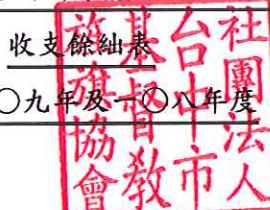 收支餘絀表
〇九年及一〇八年度
社團法人
台中市
基督教
旌旗協會